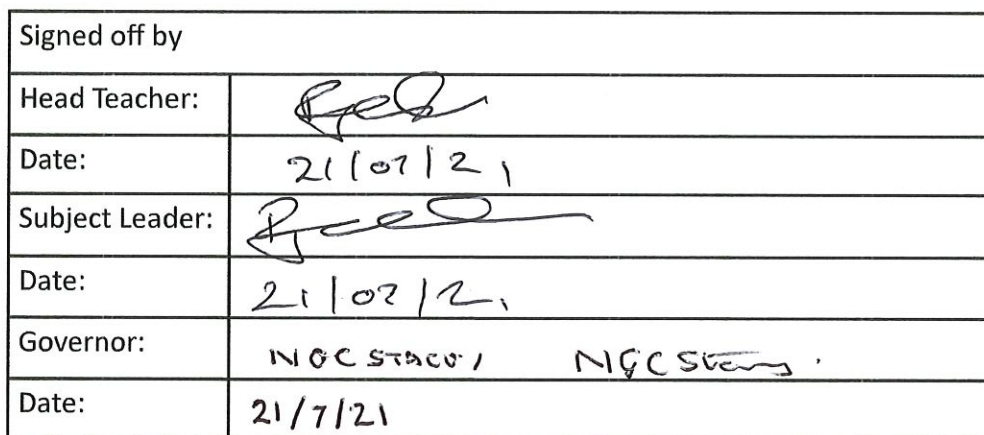 Signed off by
Head Teacher:
Date: 21/07/21
Subject Leader:
Date: 21/07/21
Governor: NGC
Date: 21/7/21